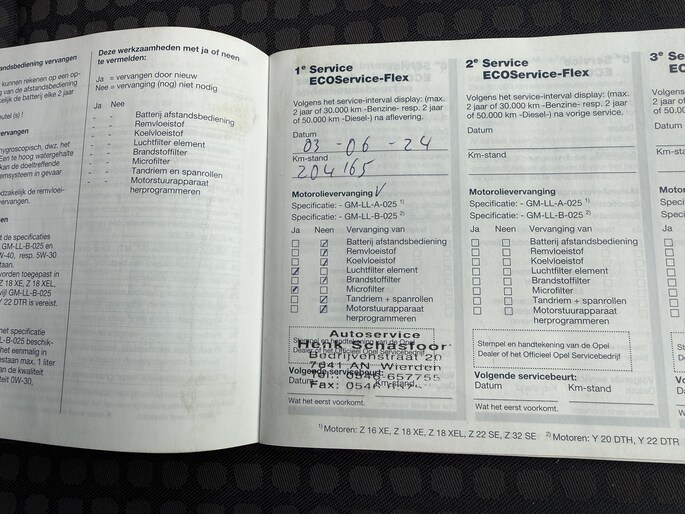 tandsbediening vervangen
kunnen rekenen op een op-
g van de afstandsbediening
elijk de batterij elke 2 jaar
eutel (s) !
ervangen
hygroscopisch, dwz. het
Een te hoog watergehalte
kan de doeltreffende
emsysteem in gevaar
odzakelijk de remvloei-
ervangen.
en
t de specificaties
GM-LL-B-025 en
W-40, resp. 5W-30
staan.
worden toegepast in
Z 18 XE, Z 18 XEL,
wijl GM-LL-B-025
Y 22 DTR is vereist.
het specificatie
LL-B-025 beschik-
het eenmalig in
estaan max. 1 liter
an de kwaliteit
teit 0W-30,
Deze werkzaamheden met ja of neen
te vermelden:
Ja = vervangen door nieuw
Nee = vervanging (nog) niet nodig
Ja Nee
- - Batterij afstandsbediening
- - Remvloeistof
- - Koelvloeistof
- - Luchtfilter element
- - Brandstoffilter
- - Microfilter
- - Tandriem en spanrollen
- - Motorstuurapparaat
herprogrammeren
1e Service
ECOService-Flex
Volgens het service-interval display: (max.
2 jaar of 30.000 km -Benzine- resp. 2 jaar
of 50.000 km -Diesel-) na aflevering.
Datum
03 -06 -24
Km-stand
204165
Motorolievervanging V
Specificatie: - GM-LL-A-025 1)
Specificatie: - GM-LL-B-025 2)
Ja Neen Vervanging van
Batterij afstandsbediening
Remvloeistof
Koelvloeistof
Luchtfilter element
Brandstoffilter
Microfilter
Tandriem + spanrollen
Motorstuurapparaat
herprogrammeren
Autoservice
Stempel en handtekening van de Opel
Henk Schasfoor
Dealer of het Officieel Opel Servicebedrijf
Bedrijvenstraat 20
7641 AN Wierden
Volgende servicebeurt:
Tel.: 0546-657755
Datum Km-stand
Fax: 0546
Wat het eerst voorkomt.
2e Service
ECOService-Flex
Volgens het service-interval display: (max.
2 jaar of 30.000 km -Benzine- resp. 2 jaar
of 50.000 km -Diesel-) na vorige service.
Datum
Km-stand
Motorolievervanging
Specificatie: - GM-LL-A-025 1)
Specificatie: - GM-LL-B-025 2)
Ja Neen Vervanging van
Batterij afstandsbediening
Remvloeistof
Koelvloeistof
Luchtfilter element
Brandstoffilter
Microfilter
Tandriem + spanrollen
Motorstuurapparaat
herprogrammeren
Stempel en handtekening van de Opel
Dealer of het Officieel Opel Servicebedrijf
Volgende servicebeurt:
Datum Km-stand
Wat het eerst voorkomt.
3e Se
ECO
Volgens he
2 jaar of 30
of 50.000 k
Datum
Km-sta
Motorol
Specific
Specific
Ja N
Stempe
Dealer
Volger
Datum
Wat het
1) Motoren: Z 16 XE, Z 18 XE, Z 18 XEL, Z 22 SE, Z 32 SE 2) Motoren: Y 20 DTH, Y 22 DTR